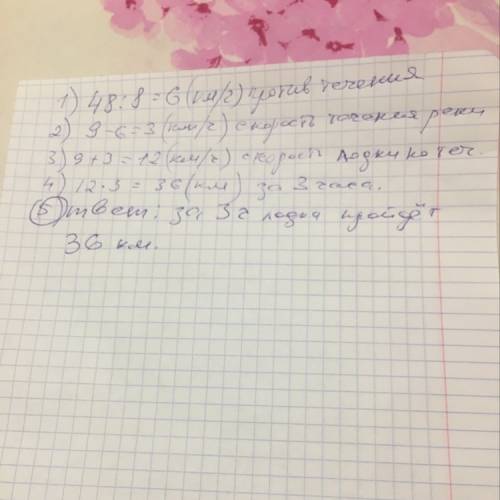 1) 48:8=6(км/ч) против течения
2) 9-6=3(км/ч) скорость течения реки
3) 9+3=12(км/ч) скорость лодки по теч.
4) 12·3=36(км) за 3 часа.
5) Ответ: за 3ч лодка пройдёт
36 км.